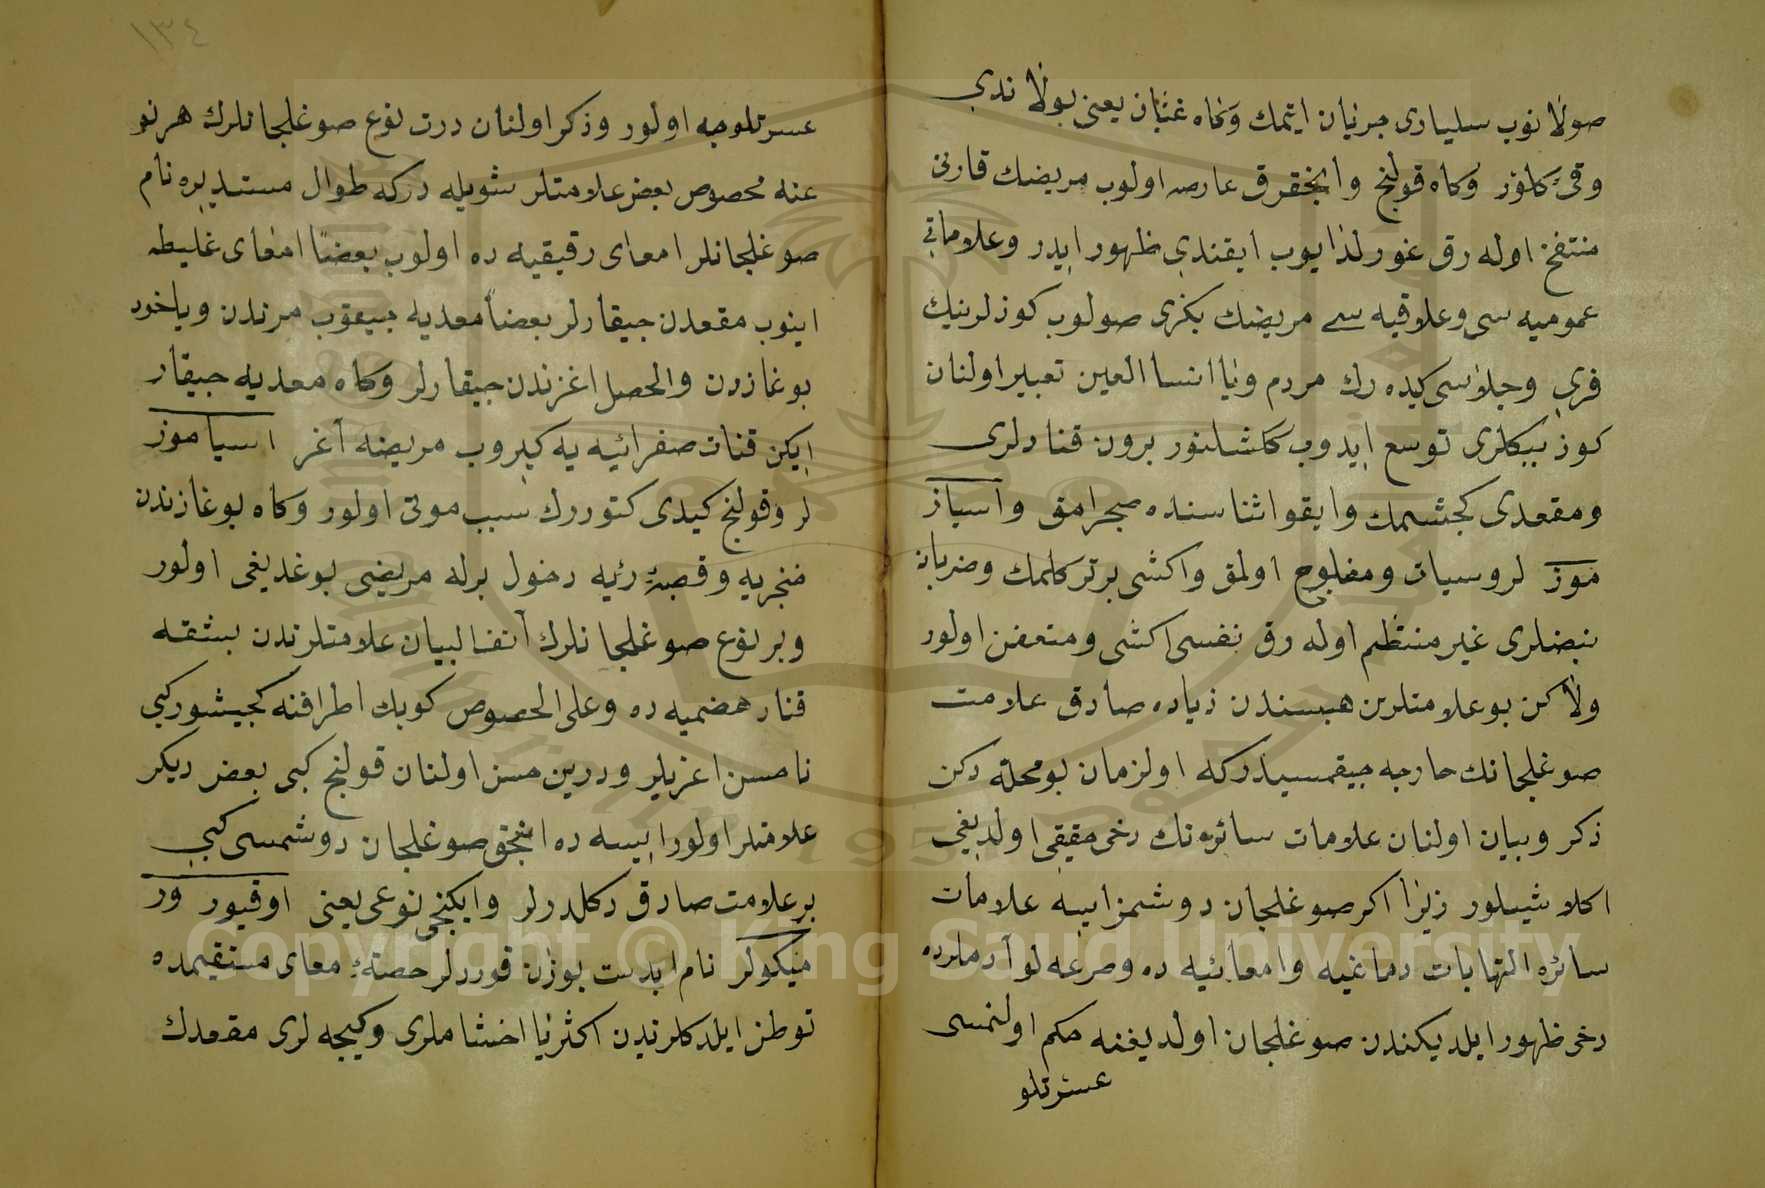 صولانوب سلیاری جریان ایتمك وكاه غثیان یعنی بولاندی
وقئ كلور وكاه قولنج وانجقرق عارض اولوب مریضك قارنی
منتفخ اوله رق غورلدایوب ایقندی ظهور ایدر وعلاماتی
عمومیه سی وعلاقیه سی مریضك بكزی صولوب كوزلرینك
فری وجلاسی كیده رك مردم ویا انسا العین تعبیر اولنان
كوز ببكلری توسع ایدوب كلشلنور برون قنادلری
ومقعدی كجشمك وایقو اثناسنده صجرامق واسپاز
موز لر وسیات ومفلوج اولمق واكشی برتر كلمك وضربان
نبضلری غیر منتظم اوله رق نفسی اكشی ومتعفن اولور
ولاكن بو علامتلرین هبسندن زیاده صادق علامت
صوغلجانك خارجه جیقمسیدركه اولزمان بو محله دكن
ذكر وبیان اولنان علامات سائره نك دخی حقیقی اولدیغی
اكلاشیلور زیرا اكر صوغلجان دوشمز ایسه علامات
سائره التهابات دماغیه وامعائیه ده وصرعه لو آدملرده
دخی ظهور ایلدیكندن صوغلجان اولدیغنه حكم اولنمسی
عسرتلو
١٣٤
عسرتلوجه اولور وذكر اولنان درت نوع صوغلجانلرك هر نو
عنه مخصوص بعض علامتلر شویله دركه طوال مستدیره نام
صوغلجانلر امعای رقیقیه ده اولوب بعضا امعای غلیظه
اینوب مقعدن جیقارلر بعضاً معدیه جیقوب مرندن ویاخود
بوغازدن والحصل اغزندن جیقارلر وكاه معدیه جیقار
ایكن قنات صفرائیه یه كیروب مریضه آغر اسپاموز
لر وقولنج كیدی كتوررك سبب موتی اولور وكاه بوغازندن
حنجریه وقصبۀ رئیه دخول برله مریضی بوغدیغی اولور
وبر نوع صوغلجانلرك آنفا لبیان علامتلرندن بشقه
قنار هضمیه ده وعلی الحصوص كوبك اطرافنه كجیشور كبی
نامسن اغزیلر ودرین حسن اولنان قولنج كبی بعض دیكر
علامتلر اولور ایسه ده انجق صوغلجان دوشمسی كبی
بر علامت صادق دكلدرلر وایكنجی نوعی یعنی اوقیور ور
میكولر نام ابدست بوزن قوردلر حصتۀ معای مستقیمده
توطن ایلدكلرندن اكثریا اخشاملری وكیجه لری مقعدك